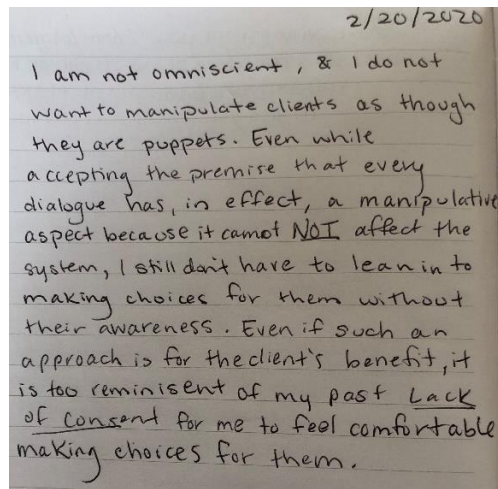 2/20/2020
I am not omniscient, & I do not
want to manipulate clients as though
they are puppets. Even while
accepting the premise that every
dialogue has, in effect, a manipulative
aspect because it cannot NOT affect the
system, I still don't have to lean in to
making choices for them without
their awareness. Even if such an
approach is for the client's benefit, it
is too reminisent of my past Lack
of Consent for me to feel comfortable
making choices for them.